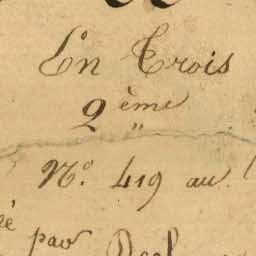 En Trois
2ème
"
N.° 419 au
par